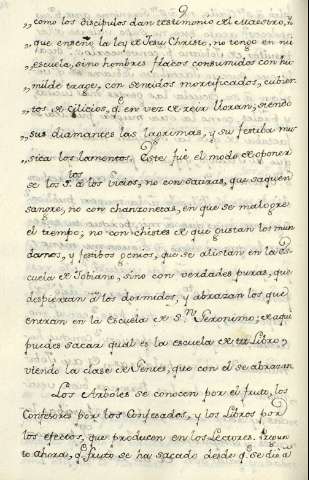 9
„como los discipulos dan testimonio del Maestro, â
„que enseño la ley de Jesu Christo, no tengo en mi
„escuela, sino hombres flacos consumidos con hu-
„milde trage, con sentidos mortificados, cubier-
„tos de Cilicios, q. en vez de reir lloran; siendo
„sus diamantes las lagrimas, y su festiba mu-
„sica los lamentos. Este fué el modo de oponer
se los S.tos â los vicios, no con satiras, que saquen
sangre, no con chanzonetas, en que se malogre
el tiempo; no con chistes de que gustan los mun
danos, y festibos genios, que se alistan en la es-
cuela de Jobiano, sino con verdades puras, que
despiertan â los dormidos, y abrazan los que
entran en la escuela de S.n Geronimo; de aqui
puedes sacar qual es la escuela de tu Libro,
viendo la clase de Gentes, que con el se abrazan
Los Arboles se conocen por el fruto, los
Confesores por los Confesados, y los Libros por
los efectos, que producen en los Lectores. Pregun
to ahora, q. fruto se ha sacado desde q. se diò â